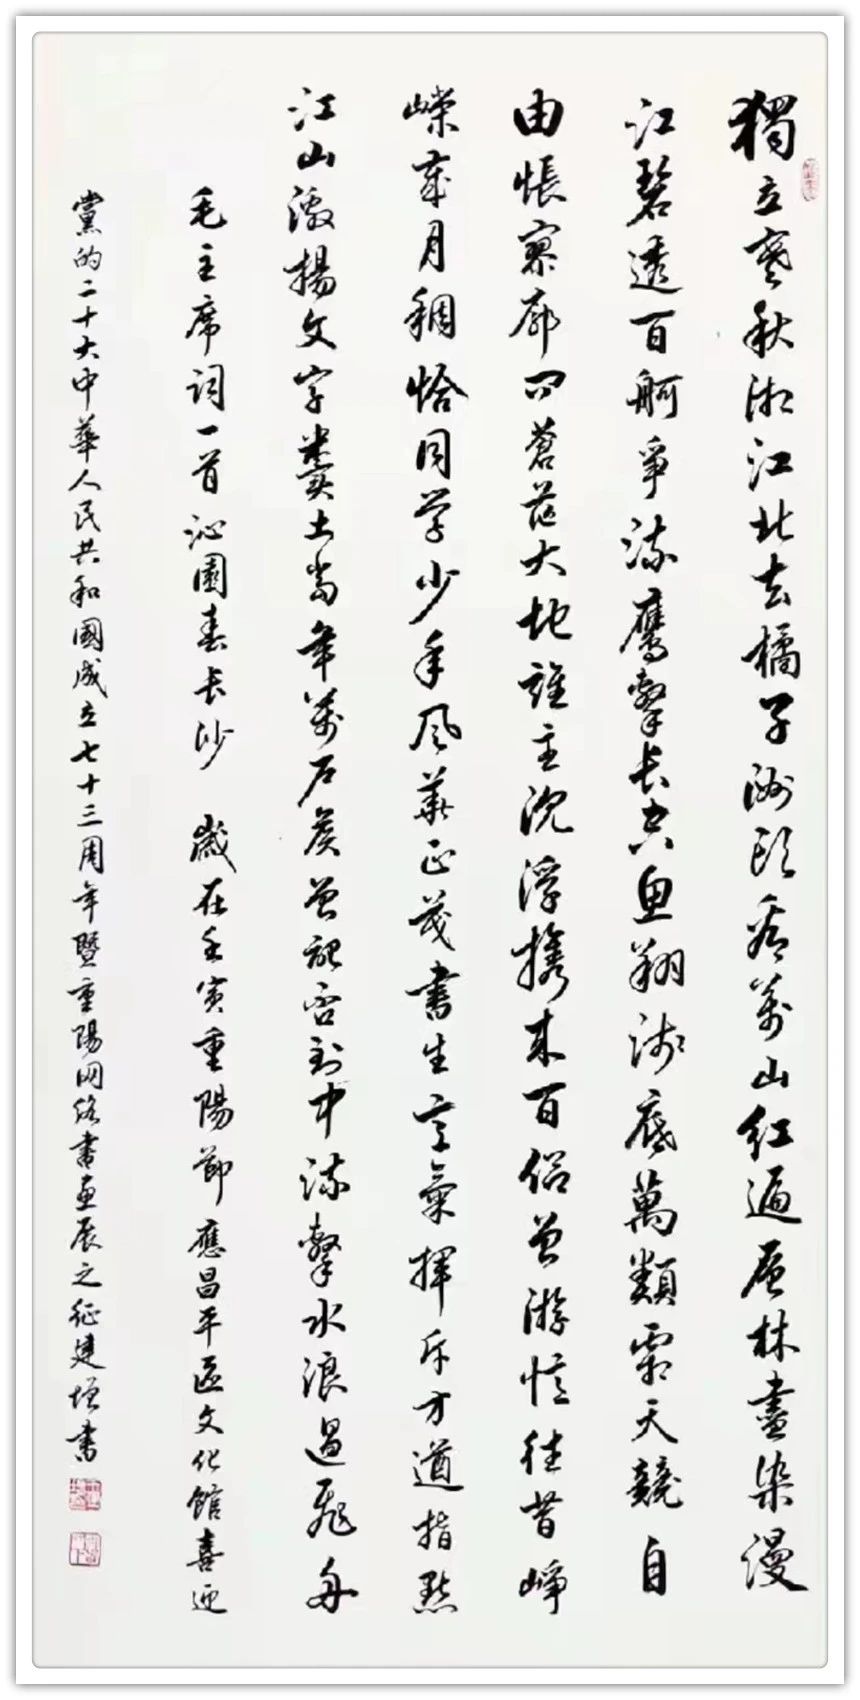 獨立寒秋湘江北去橘子洲頭看萬山紅遍層林盡染漫
江碧透百舸爭流鷹擊長空魚翔淺底萬類霜天競自
由悵寥廓問蒼茫大地誰主沉浮攜來百侶曾游憶往昔崢
嶸歲月稠恰同學少年風華正茂書生意氣揮斥方遒指點
江山激揚文字糞土當年萬戶侯曾記否到中流擊水浪遏飛舟
毛主席詞一首沁園春長沙 歲在壬寅重陽節應昌平區文化館喜迎
黨的二十大中華人民共和國成立七十三周年暨重陽网络書画展之征建增書